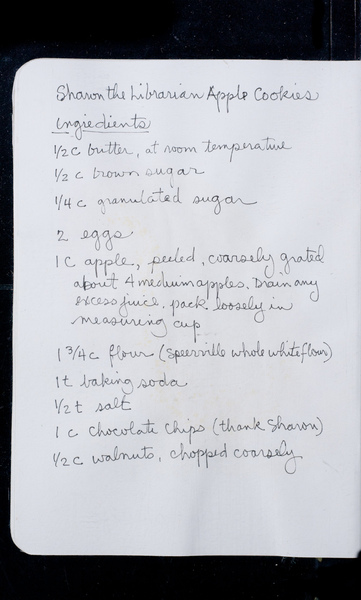 Sharon the Librarian Apple Cookies
Ingredients
1/2 c butter, at room temperature
1/2 c brown sugar
1/4 c granulated sugar
2 eggs
1 c apple, peeled, coarsely grated
about 4 medium apples. Drain any
excess juice. pack loosely in
measuring cup
1 3/4 c flour (Speerville whole white flour)
1 t baking soda
1/2 t salt
1 c chocolate chips (thank Sharon)
1/2 c walnuts, chopped coarsely